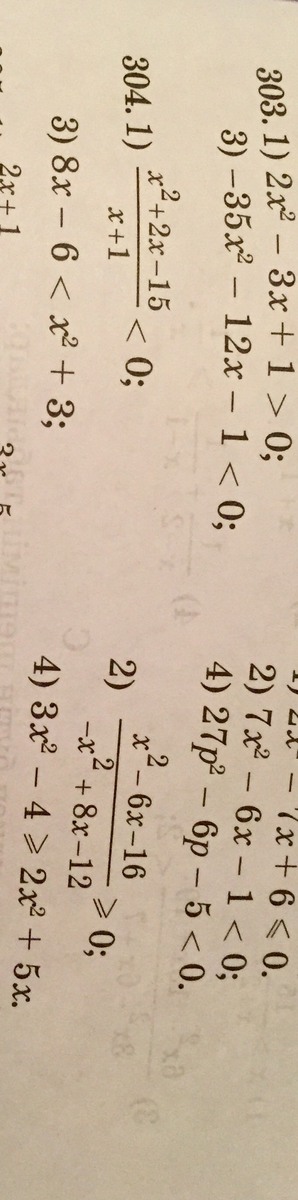 7x + 6 ⩽ 0.
303. 1) 2x² − 3x + 1 > 0; 2) 7x² − 6x − 1 < 0;
3) −35x² − 12x − 1 < 0; 4) 27p² − 6p − 5 < 0.
304. 1) (x²+2x−15)/(x+1) < 0; 2) (x²−6x−16)/(−x²+8x−12) ⩾ 0;
3) 8x − 6 < x² + 3; 4) 3x² − 4 ⩾ 2x² + 5x.
2x+1